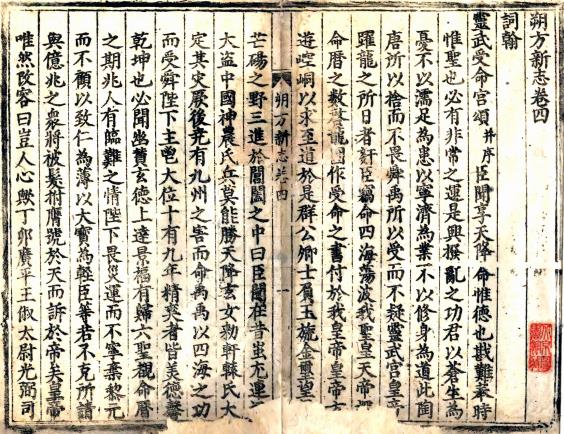 朔方新志卷四
詞翰
靈武受命宮頌并序臣聞享天降命惟德也戡難奉時
惟聖也必有非常之運是興撥亂之功君以蒼生為
憂不以濡足為患以寧濟為業不以修身為道此陶
唐所以捨而不畏舜禹所以受而不疑靈武宮皇帝
躍龍之所日者奸臣竊命四海蕩波我聖皇天帝
命曆之數龍圖作受命之書付於我皇帝皇帝
遊崆峒以求至道於是群公卿士負玉旒金璽望
朔方新志卷四
一
芒碭之野三進於閶闔之中曰臣聞在昔蚩尤連
大盜中國神農氏兵莫能勝天降玄女勑軒轅氏大
定其災厥後堯有九州之害而命禹禹以四海之功
而受舜陛下主鬯大位十有九年精爽者皆美德馨
乾坤也必聞幽贊玄德上達景福有歸六聖覩命曆
之期兆人有臨難之情陛下畏災運而不寧棄黎元
而不顧以致仁為薄以大寶為輕臣等若不克所請
與億兆之衆將被髮拊膺號於天而訴於帝矣皇帝
唯然改容曰豈人心歟丁卯廣平王俶太尉光弼司